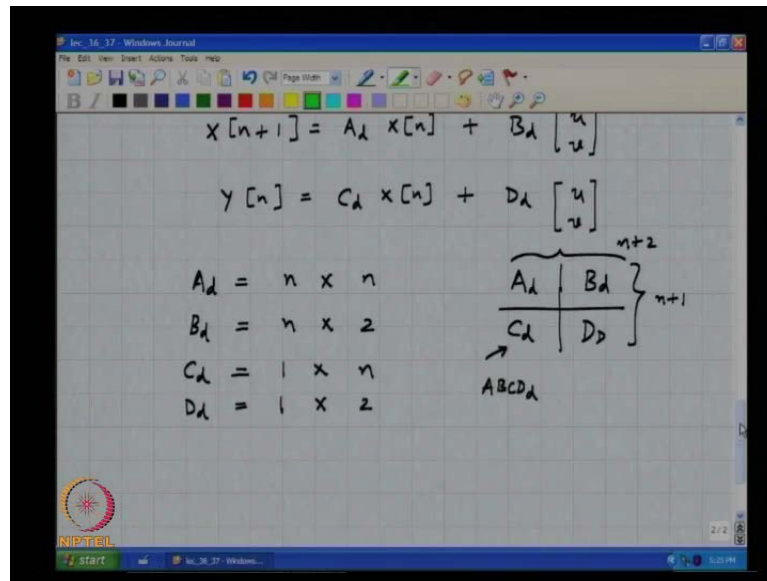 lec_36_37 - Windows Journal
File Edit View Insert Actions Tools Help
Page Width
B I
x[n+1] = A_d x[n] + B_d [u v]
y[n] = C_d x[n] + D_d [u v]
n+2
A_d = n x n
A_d | B_d
n+1
B_d = n x 2
C_d | D_D
C_d = 1 x n
ABCD_d
D_d = 1 x 2
2/2
NPTEL
start
lec_36_37 - Windows...
5:25 PM